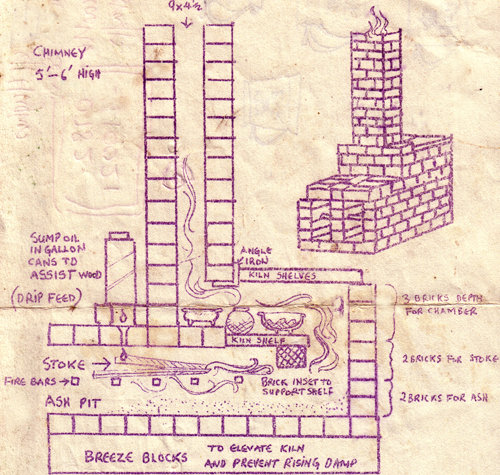 9x4½
CHIMNEY
5'-6' HIGH
SUMP OIL
IN GALLON
CANS TO
ASSIST WOOD
(DRIP FEED)
ANGLE
IRON
KILN SHELVES
3 BRICKS DEPTH
FOR CHAMBER
KILN SHELF
STOKE
2 BRICKS FOR STOKE
FIRE BARS
BRICK INSET TO
SUPPORT SHELF
2 BRICKS FOR ASH
ASH PIT
BREEZE BLOCKS
TO ELEVATE KILN
AND PREVENT RISING DAMP